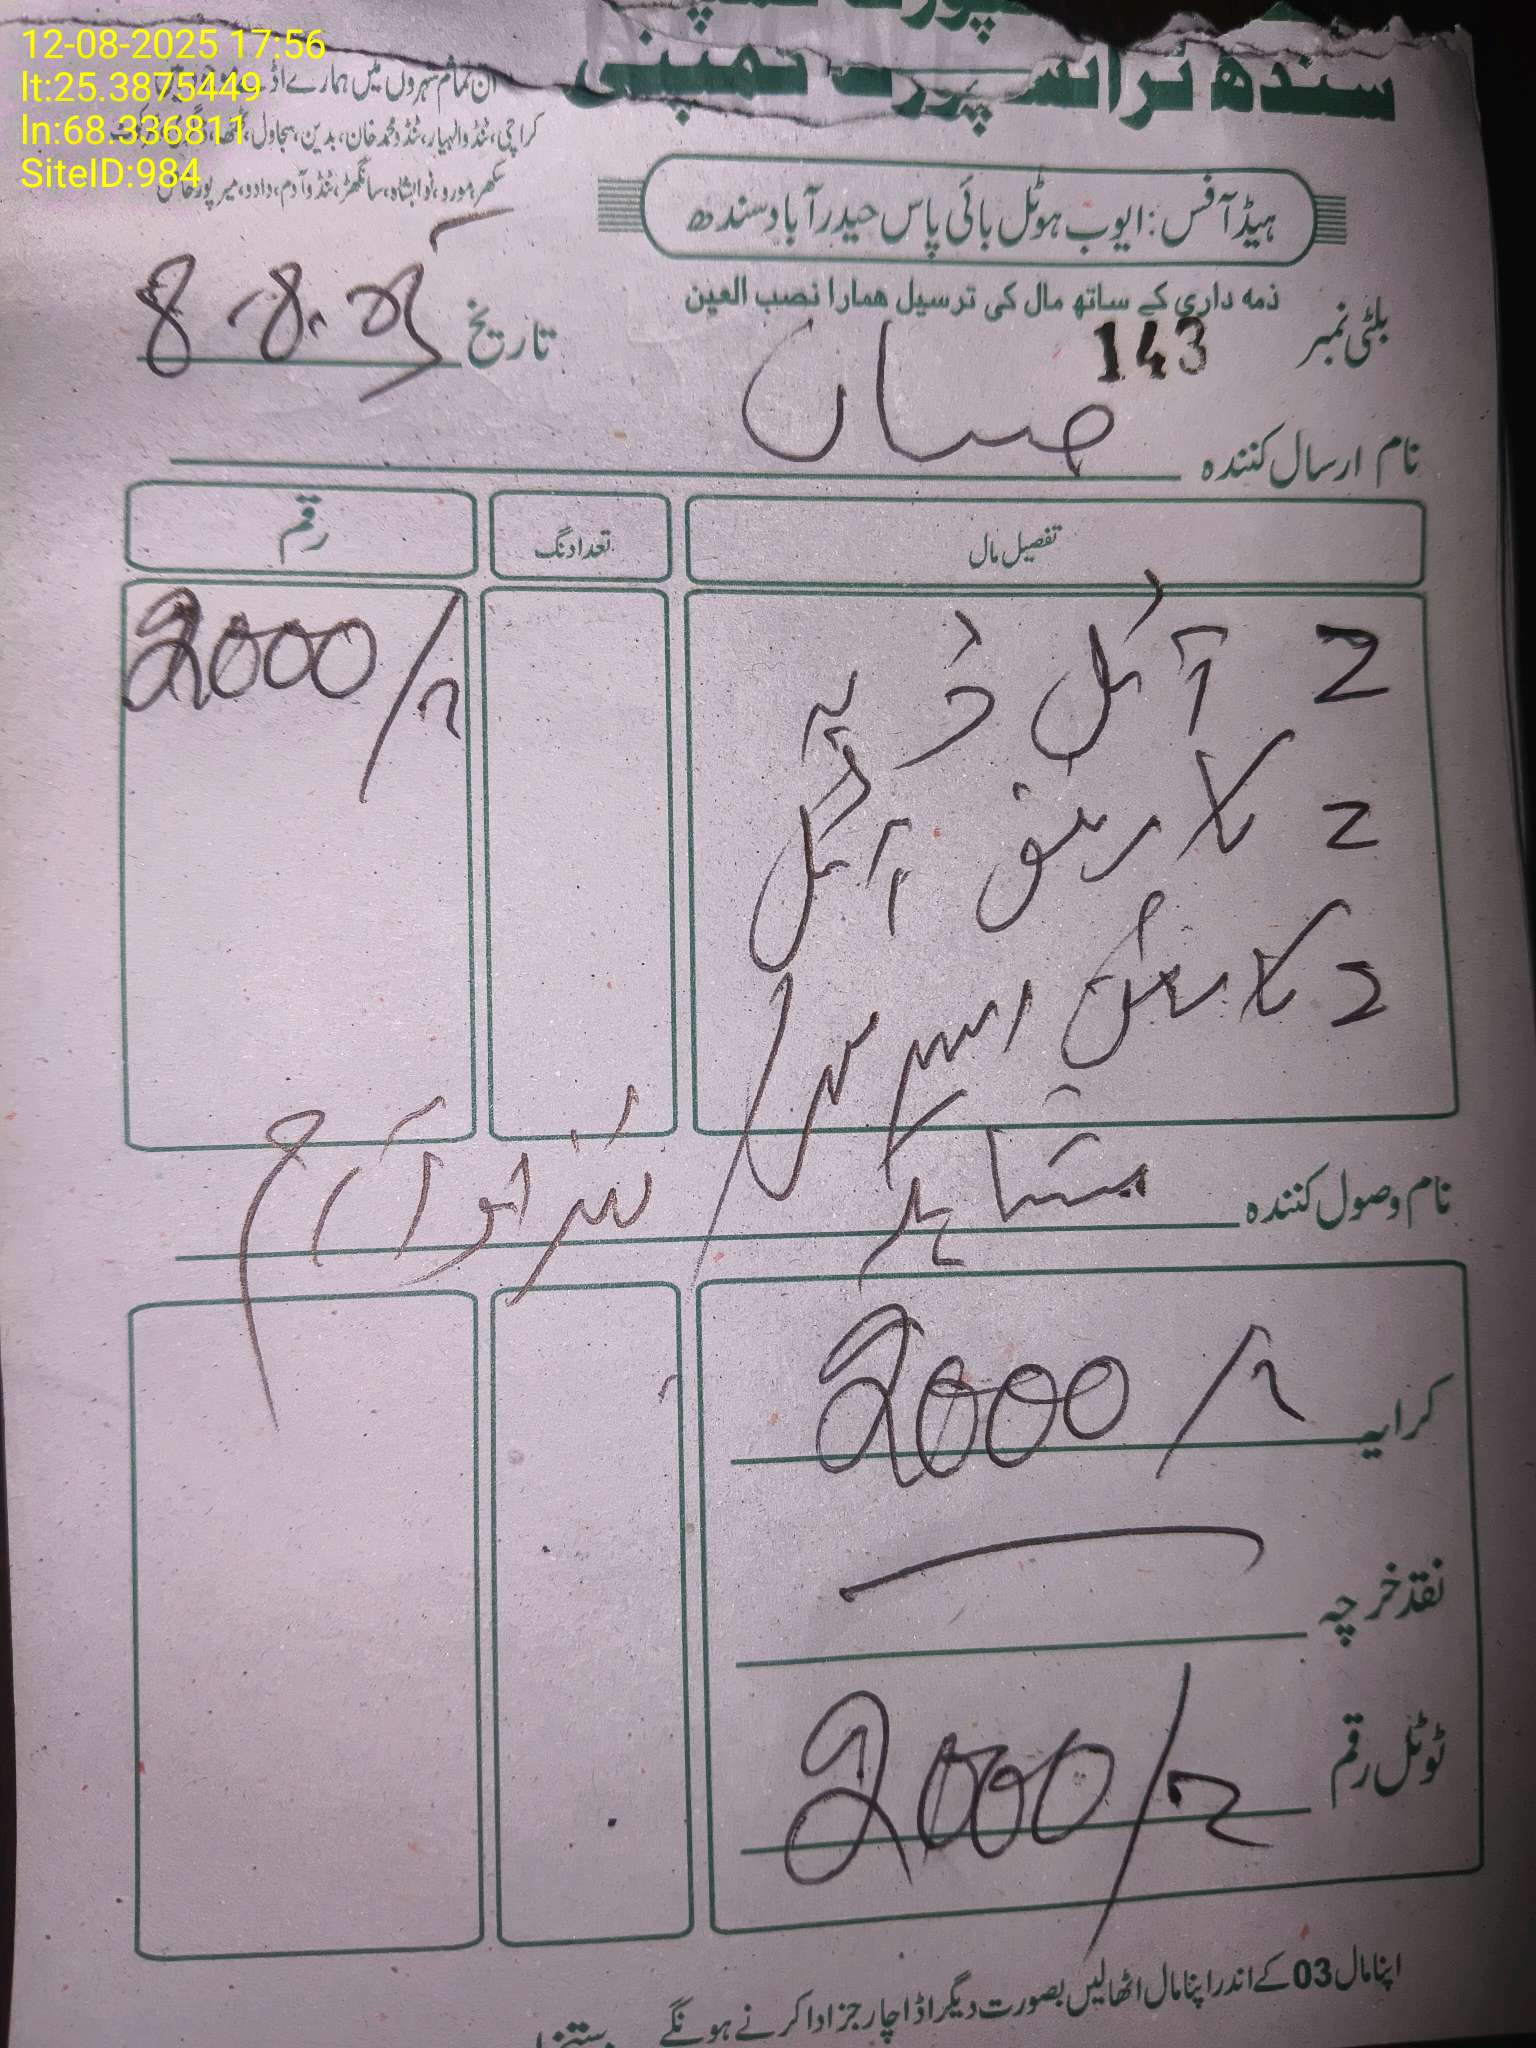 12-08-2025 17:56
lt:25.3875449
ln:68.336811
SiteID:984
سندھ ٹرانسپورٹ کمپنی
ان تمام شہروں میں ہمارے اڈے
کراچی، ٹنڈوالہیار، ٹنڈو محمد خان، بدین، سجاول، ٹھٹھہ،
سکھر، مورو، نوابشاہ، سانگھڑ، ٹنڈوآدم، دادو، میرپور خاص
ہیڈ آفس: ایوب ہوٹل بائی پاس حیدرآباد سندھ
ذمہ داری کے ساتھ مال کی ترسیل ھمارا نصب العین
بلٹی نمبر 143
تاریخ 8-8-25
نام ارسال کنندہ حسان
تفصیل مال تعداد نگ رقم
2 آئل ڈبہ 2000/-
2 کارٹن آئل
2 کارٹن
نام وصول کنندہ ٹنڈوآدم
کرایہ 2000/-
نقد خرچہ
ٹوٹل رقم 2000/-
اپنا مال 03 کے اندر اپنا مال اٹھالیں بصورت دیگر اڈا چارجز ادا کرنے ہونگے